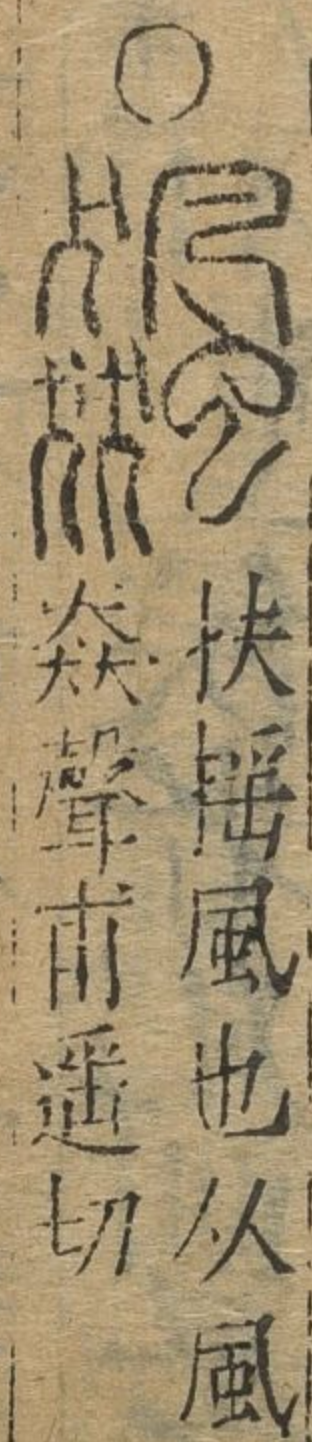 飆
扶搖風也从風
猋聲甫遥切